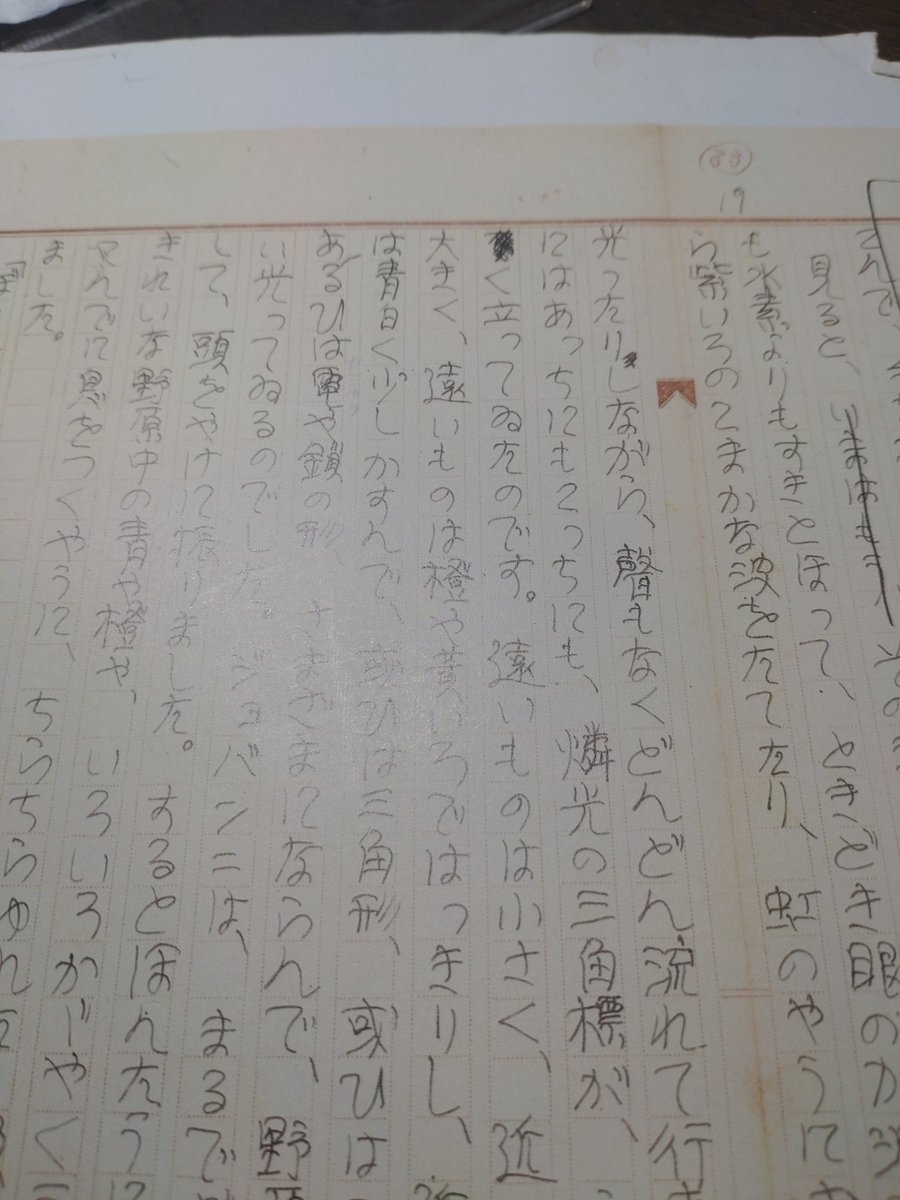 見ると、いまはもう、その
も水素よりもすきとほって、ときどき眼のか
ら紫いろのこまかな波をたてたり、虹のやうに
光ったりしながら、聲もなくどんどん流れて行
にはあっちにもこっちにも、燐光の三角標が、
く立ってゐたのです。遠いものは小さく、近
大きく、遠いものは橙や黄いろではっきりし、近
は青白く少しかすんで、或ひは三角形、或ひは
あるひは電や鎖の形、さまざまにならんで、野原
い光ってゐるのでした。ジョバンニは、まるで
して、頭をやけに振りました。するとほんたうに
きれいな野原中の青や橙や、いろいろかゞやく
てんでに息をつくやうに、ちらちらゆれ
ました。
「ぼ
19
88